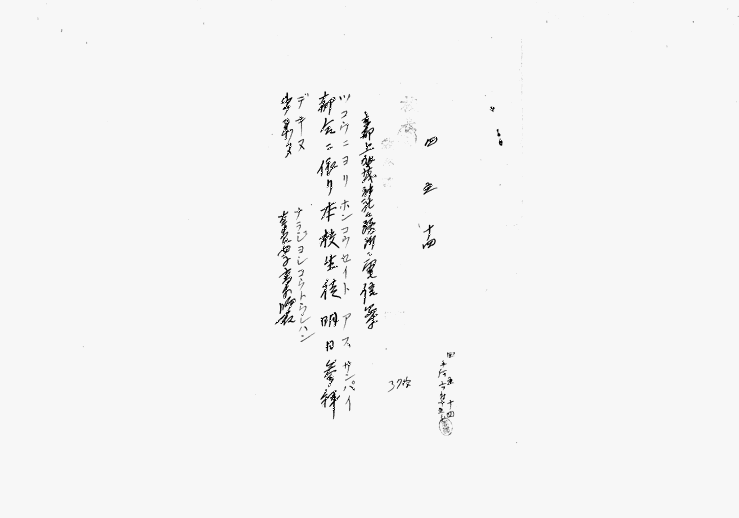 四 五 十四
京都上賀茂神社々務所ニ電信案
ツコウニヨリ ホンコウセイト アス サンパイ
都合ニ依リ 本校生徒 明日 参拝
デキヌ
出来ヌ
ナラジヨシコウトウシハン
奈良女子高等師範
37字
四 五 十四